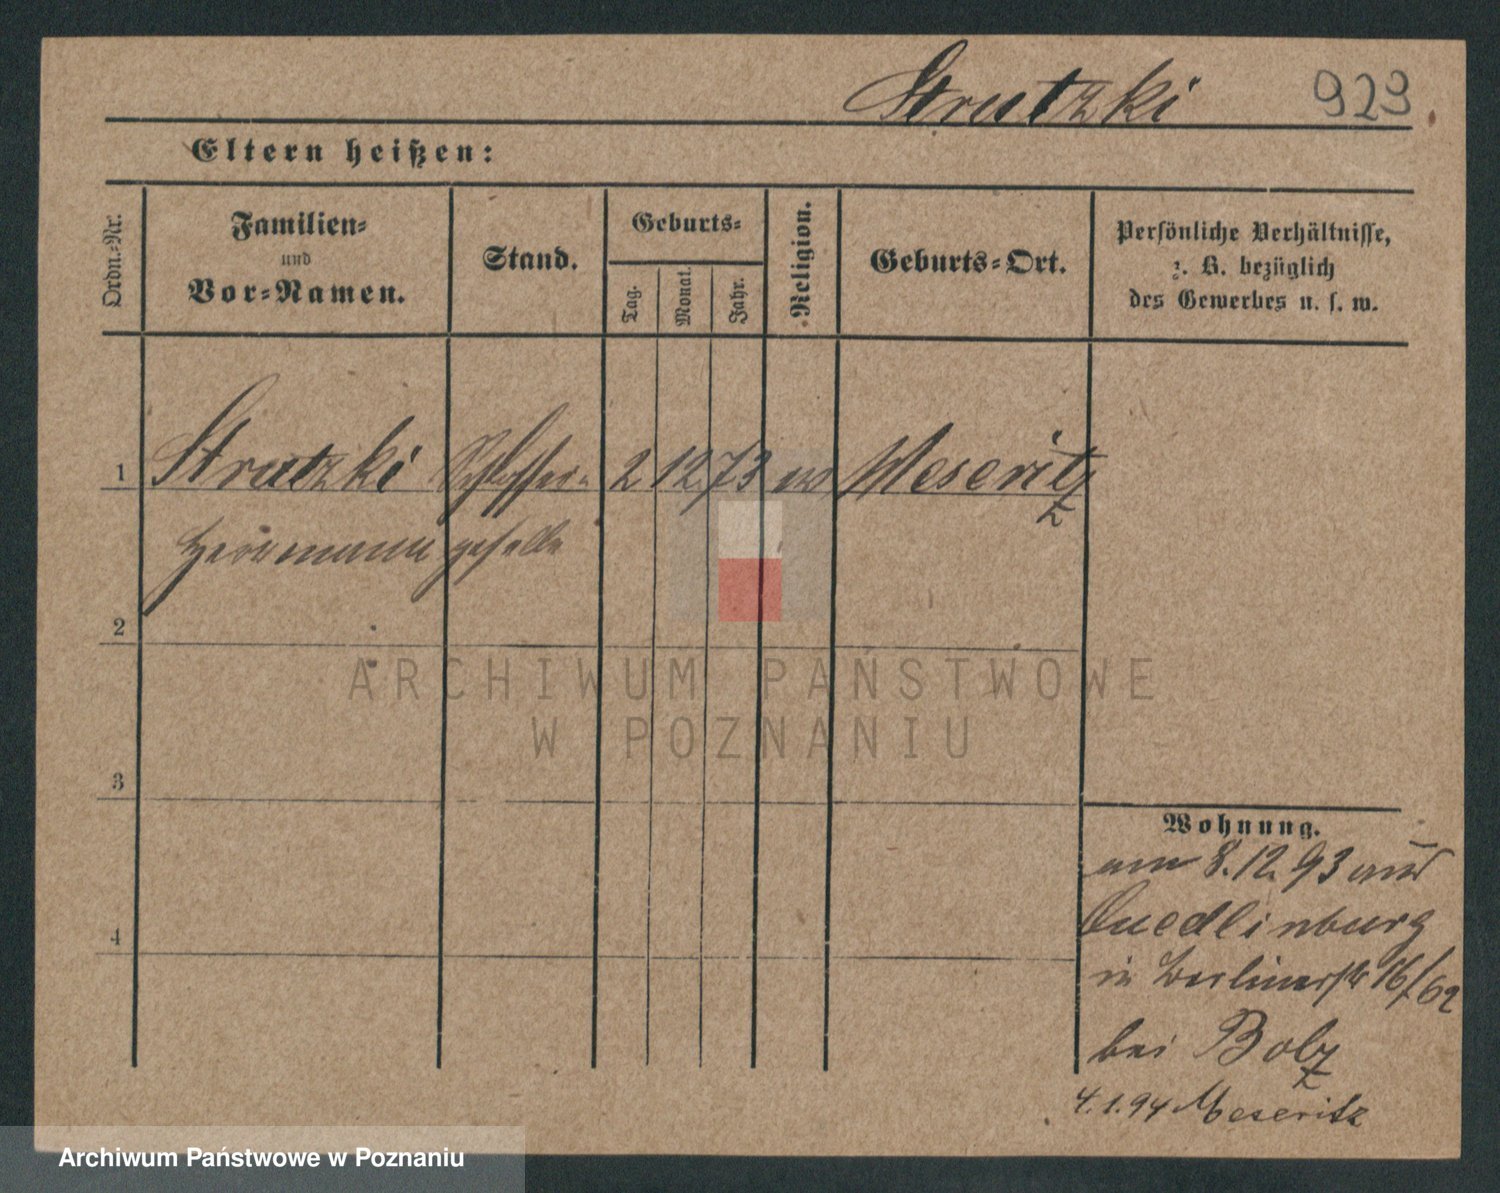 Strutzki 929
Eltern heißen:
Ordn.-Nr.
Familien-
und
Vor-Namen.
Stand.
Geburts-
Tag.
Monat.
Jahr.
Religion.
Geburts-Ort.
Persönliche Verhältnisse,
z. B. bezüglich
des Gewerbes u. s. w.
1 Strutzki Schlosser- 2 12 73 ev Meseritz
Herrmann geselle
2
3
4
Wohnung.
am 8.12.93 aus
Quedlinburg
in Berlinerstr 16/62
bei Bolz
4.1.94 Meseritz
ARCHIWUM PAŃSTWOWE
W POZNANIU
Archiwum Państwowe w Poznaniu